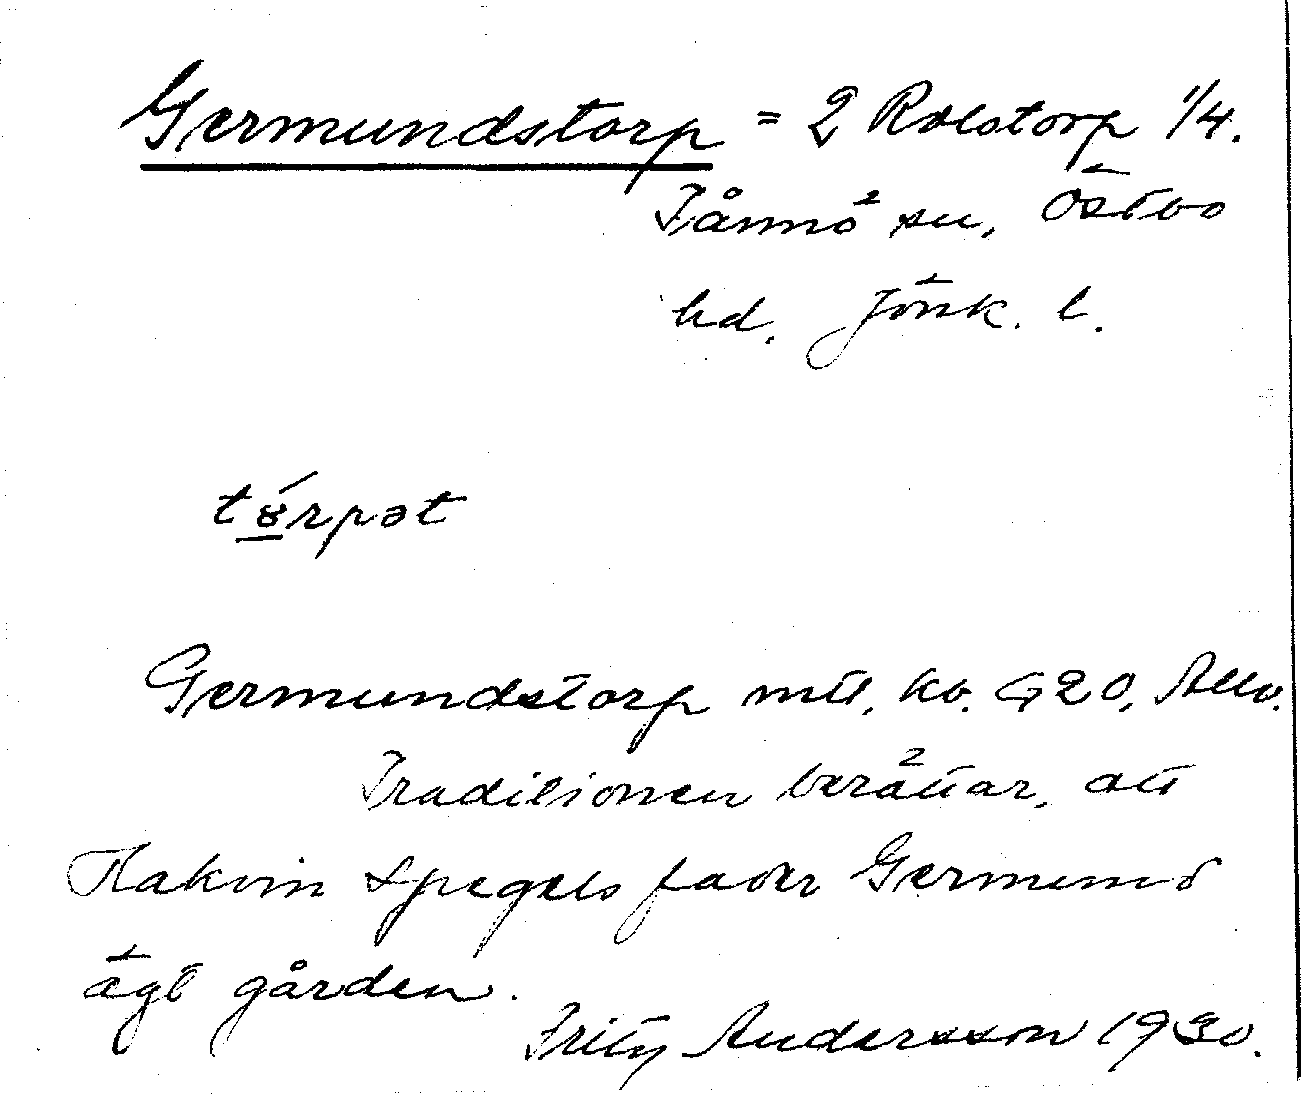 Germundstorp = 2 Rolstorp 1/4.
Tånnö sn, Östbo
hd. Jönk. l.
Germundstorp mtl. kb. G20, Allm.
Traditionen berättar, att
Hakvin Spegels fader Germund
ägt gården.
Fritz Andersson 1930.